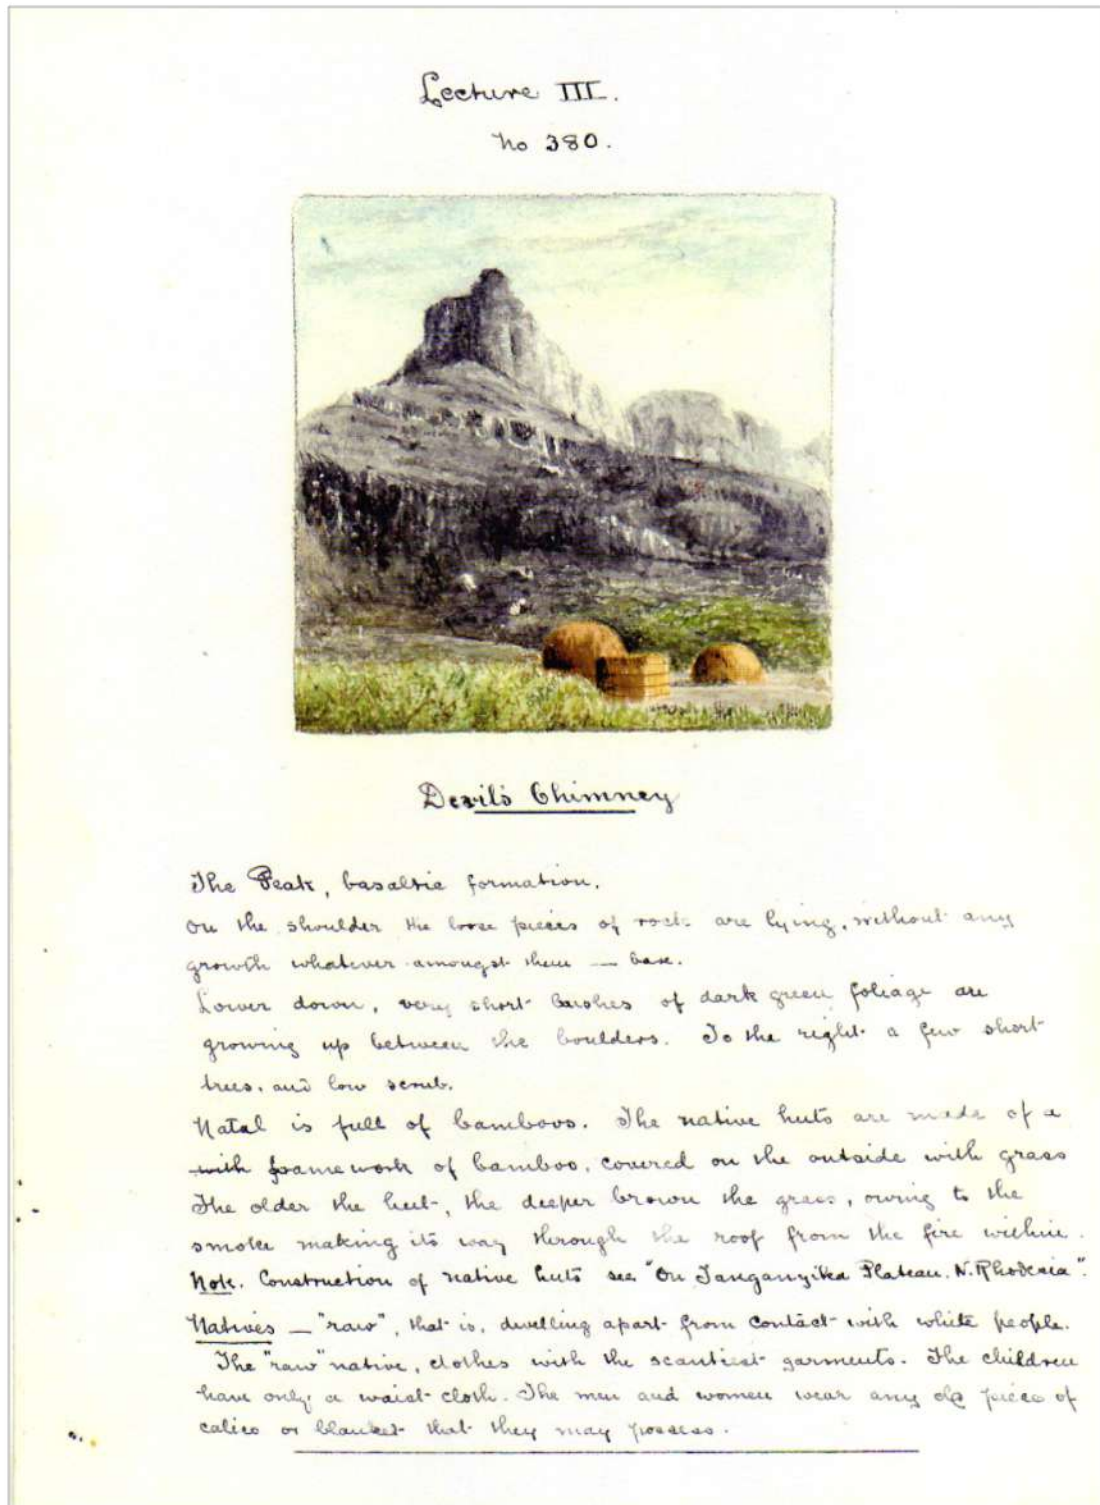 Lecture III.
No 380.
Devil's Chimney
The Peak, basaltic formation.
On the shoulder the loose pieces of rock are lying, without any
growth whatever amongst them — bare.
Lower down, very short bushes of dark green foliage are
growing up between the boulders. To the right a few short
trees, and low scrub.
Natal is full of bamboos. The native huts are made of a
with framework of bamboo, covered on the outside with grass
The older the hut, the deeper brown the grass, owing to the
smoke making its way through the roof from the fire within.
Note. Construction of native huts see "On Tanganyika Plateau. N. Rhodesia".
Natives — "raw", that is, dwelling apart from contact with white people.
The "raw" native, clothes with the scantiest garments. The children
have only a waist cloth. The men and women wear any old piece of
calico or blanket that they may possess.